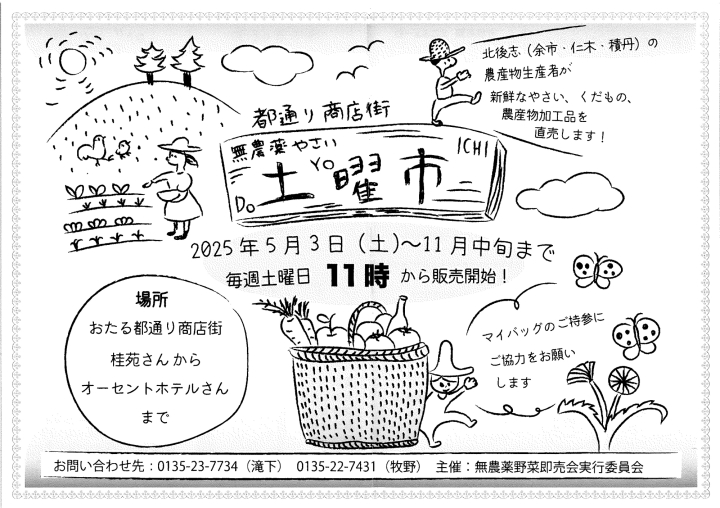 北後志（余市・仁木・積丹）の
農産物生産者が
新鮮なやさい、くだもの、
農産物加工品を
直売します！
都通り商店街
無農薬やさい
Do 土 Yo 曜 市 ICHI
2025年5月3日（土）～11月中旬まで
毎週土曜日 11時 から販売開始！
場所
おたる都通り商店街
桂苑さんから
オーセントホテルさん
まで
マイバッグのご持参に
ご協力をお願い
します
お問い合わせ先：0135-23-7734（滝下） 0135-22-7431（牧野） 主催：無農薬野菜即売会実行委員会